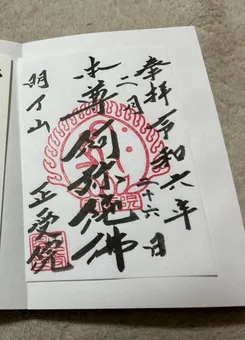 奉拝 令和六年
二月二十六日
本尊 阿弥陀佛
明了山 正受院